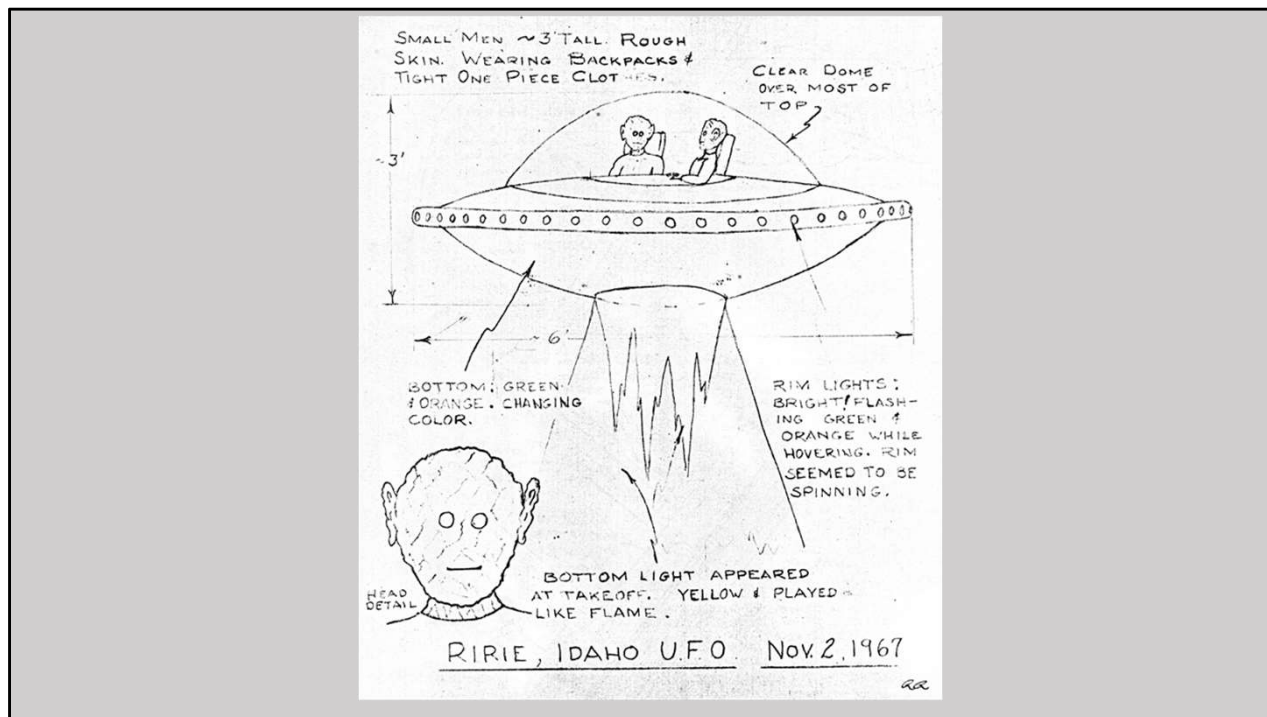 SMALL MEN ~3' TALL. ROUGH
SKIN. WEARING BACKPACKS &
TIGHT ONE PIECE CLOTHES.
CLEAR DOME
OVER MOST OF
TOP
~3'
~ 6'
BOTTOM: GREEN
& ORANGE. CHANGING
COLOR.
RIM LIGHTS:
BRIGHT! FLASH-
ING GREEN &
ORANGE WHILE
HOVERING. RIM
SEEMED TO BE
SPINNING.
HEAD
DETAIL
BOTTOM LIGHT APPEARED
AT TAKEOFF. YELLOW & PLAYED
LIKE FLAME.
RIRIE, IDAHO U.F.O. NOV. 2, 1967